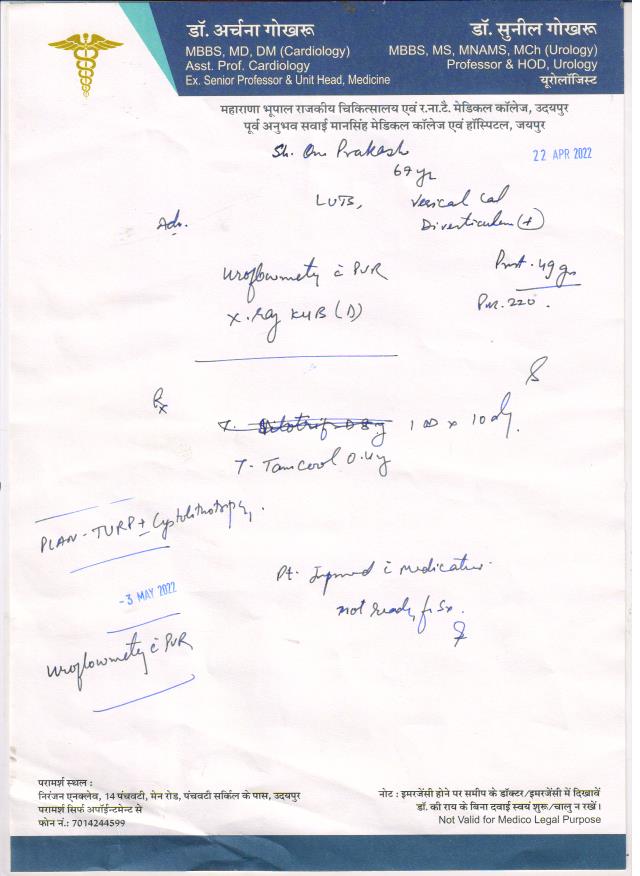 डॉ. अर्चना गोखरू
MBBS, MD, DM (Cardiology)
Asst. Prof. Cardiology
Ex. Senior Professor & Unit Head, Medicine
डॉ. सुनील गोखरू
MBBS, MS, MNAMS, MCh (Urology)
Professor & HOD, Urology
यूरोलॉजिस्ट
महाराणा भूपाल राजकीय चिकित्सालय एवं र.ना.टै. मेडिकल कॉलेज, उदयपुर
पूर्व अनुभव सवाई मानसिंह मेडिकल कॉलेज एवं हॉस्पिटल, जयपुर
Sh. Om Prakash
22 APR 2022
69 yr
LUTS, Vesical Cal
Diverticulum (+)
Adv.
Uroflowmetry c̄ PVR
Prost. 49 gm
X-Ray KUB (D)
PVR. 220.
Rx
T. 1 OD x 10 dy.
T. Tamcool 0.4 mg
PLAN - TURP ± Cystolithotripsy.
Pt. Improved c̄ medication.
-3 MAY 2022
not ready for Sx.
Uroflowmetry c̄ PVR
परामर्श स्थल :
निरंजन एनक्लेव, 14 पंचवटी, मेन रोड, पंचवटी सर्किल के पास, उदयपुर
परामर्श सिर्फ अपॉईन्टमेन्ट से
फोन नं.: 7014244599
नोट : इमरजेंसी होने पर समीप के डॉक्टर/इमरजेंसी में दिखावें
डॉ. की राय के बिना दवाई स्वयं शुरू/चालु न रखें।
Not Valid for Medico Legal Purpose